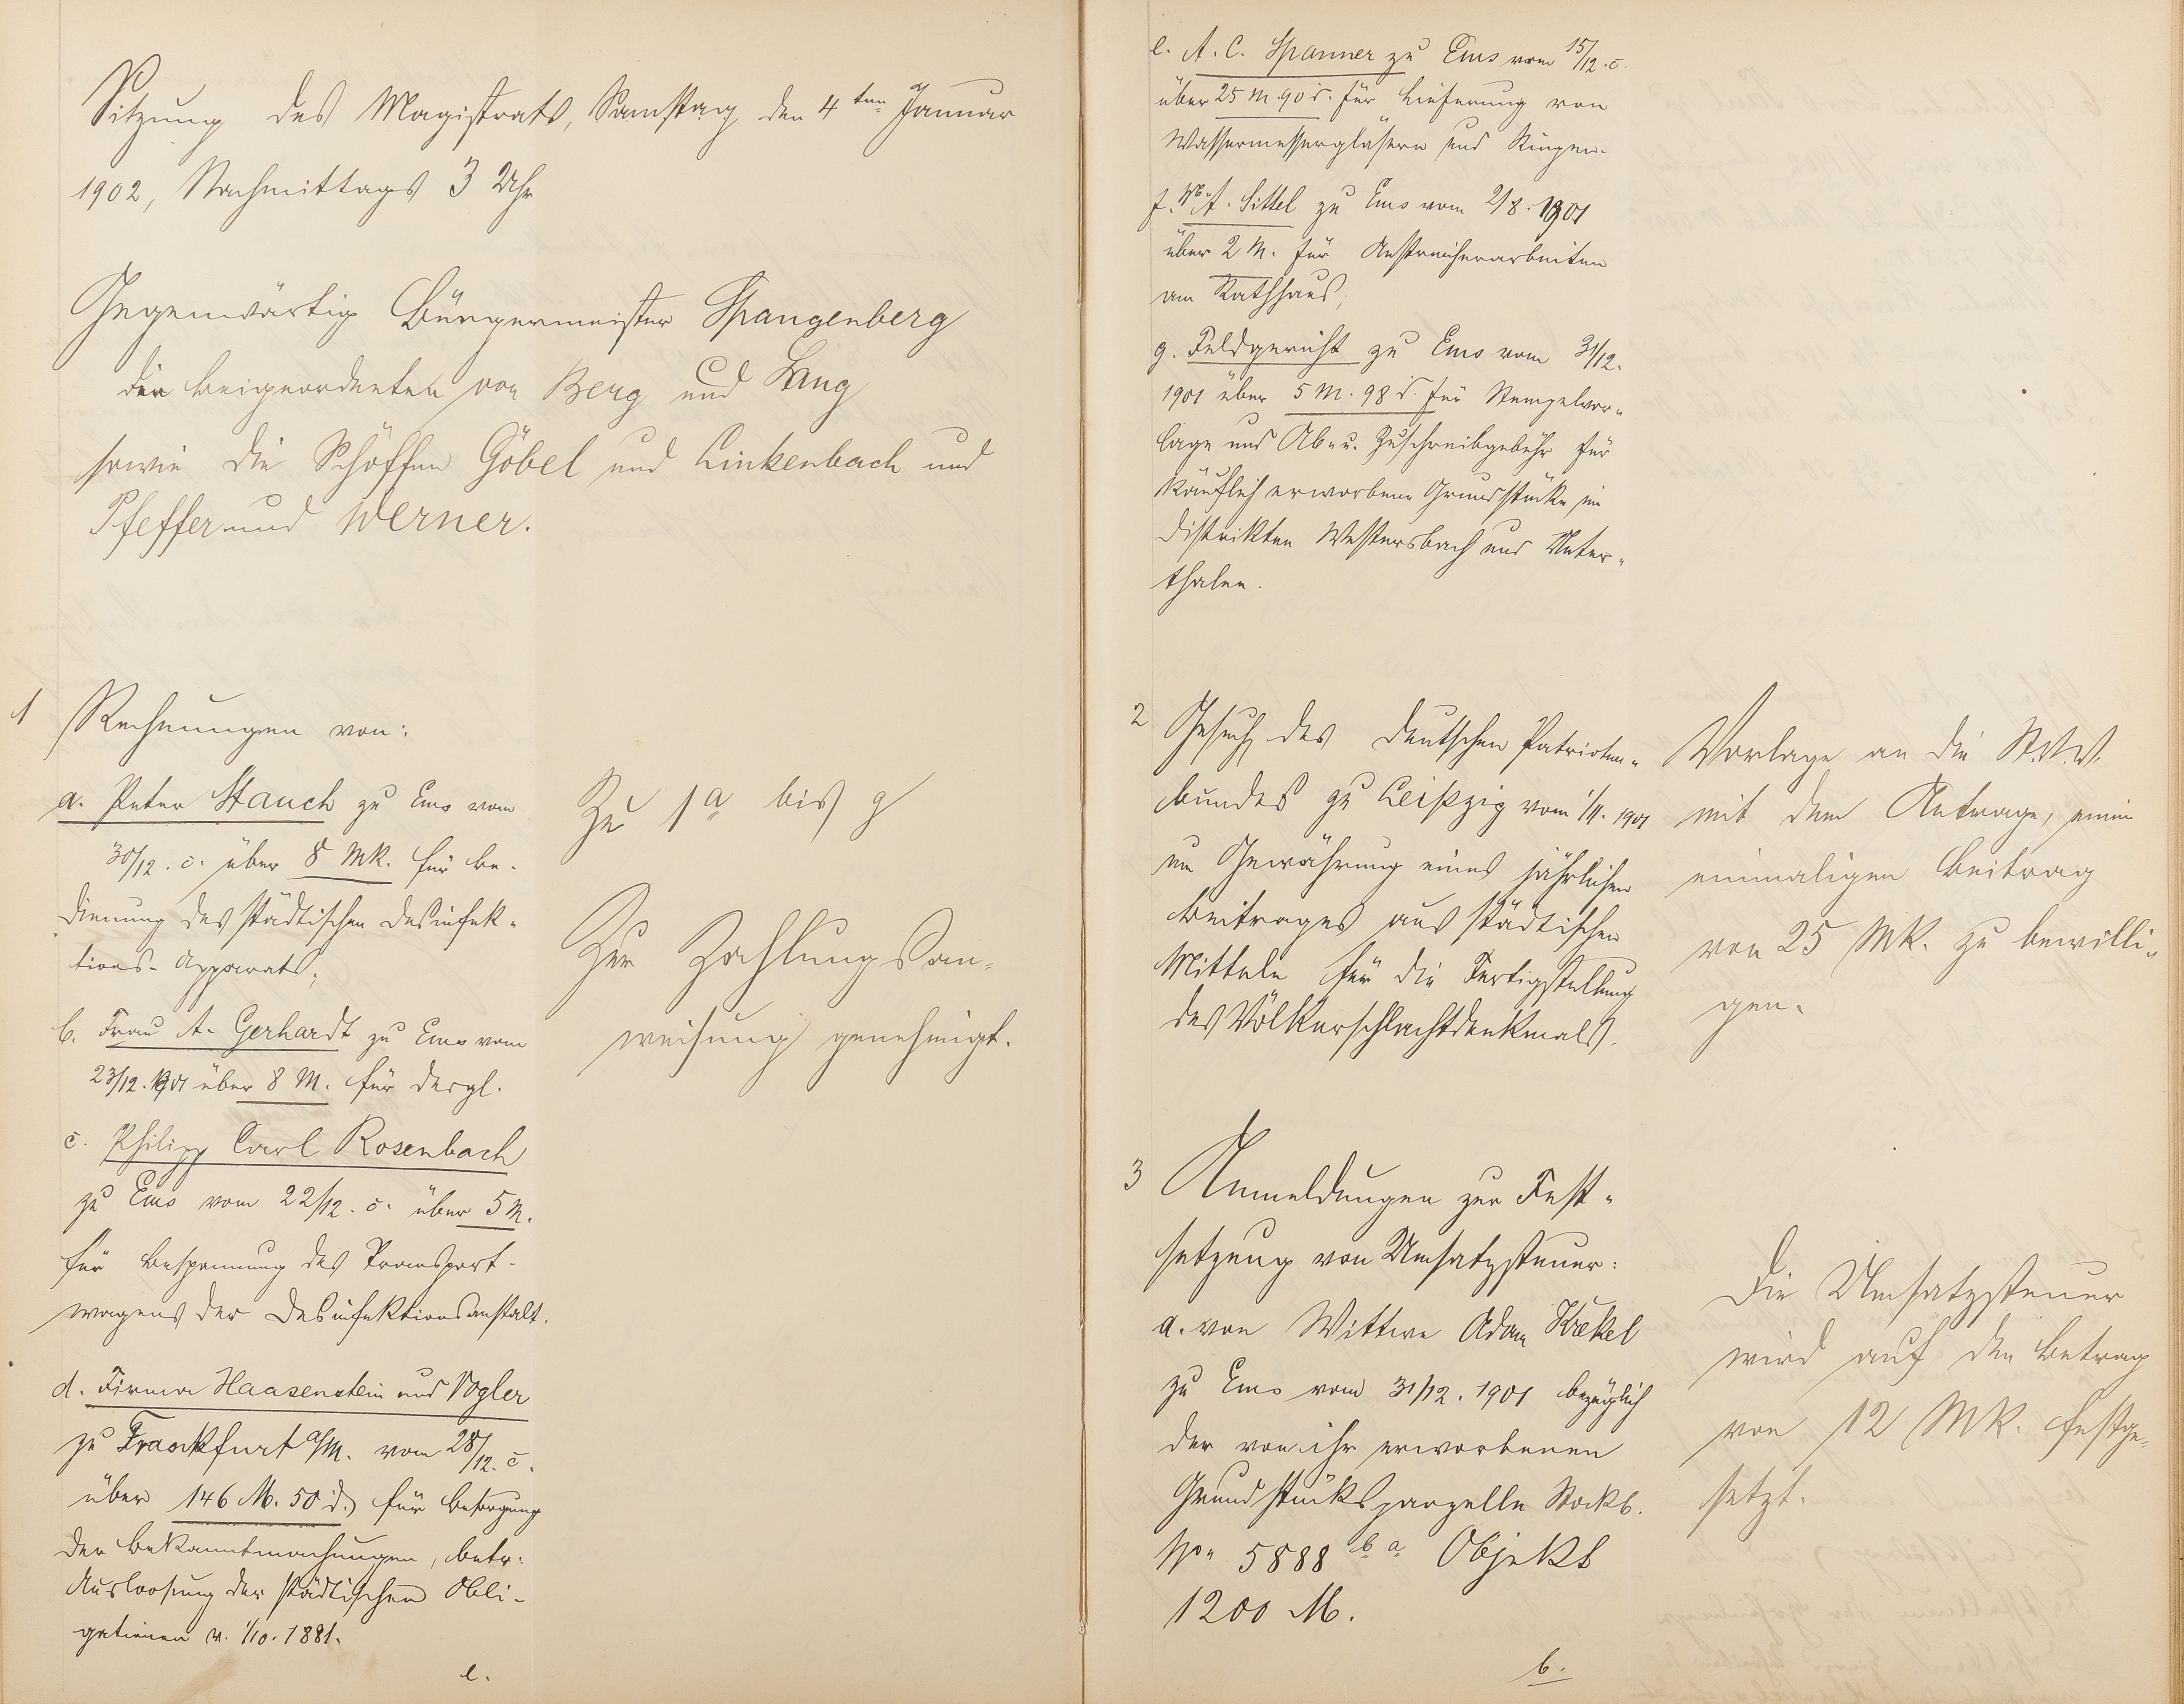 Sitzung des Magistrats, Samstag den 4ten Januar
1902, Nachmittags 3 Uhr
Gegenwärtig Bürgermeister Spangenberg
die Beigeordneten von Berg und Lang
sowie die Schöffen Göbel und Linkenbach und
Pfeffer und Werner.
1 Rechnungen von:
a. Peter Stauch zu Ems vom
30/12. c. über 8 Mk. für Be-
dienung des städtischen Desinfek-
tions-Apparats;
b. Frau A. Gerhardt zu Ems vom
23/12. 1901 über 8 M. für dergl.
c. Philipp Carl Rosenbach
zu Ems vom 22/12. c. über 5 M.
für Bespannung des Transport-
wagens der Desinfektionsanstalt.
d. Firma Haasenstein und Vogler
zu Frankfurt a/M. vom 28/12. c.
über 146 M. 50 d. für Besorgung
der Bekanntmachungen, betr.
Ausloosung der städtischen Obli-
gationen v. 1/10. 1881.
e.
Zu 1a bis g
Zur Zahlungsan-
weisung genehmigt.
e. A. C. Spanner zu Ems vom 15/12. c.
über 25 M 90 d. für Lieferung von
Wassermessergläsern und Ringen.
f. A. Sittel zu Ems vom 2/8. 1901
über 2 M. für Anstreicherarbeiten
am Rathhaus;
g. Feldgericht zu Ems vom 31/12.
1901 über 5 M. 98 d. für Stempelvor-
lage und Ab- u. Zuschreibgebühr für
käuflich erworbene Grundstücke im
Distrikten Westersbach und Unter-
thalen.
2 Gesuch des deutschen Patrioten-
bundes zu Leipzig vom 1/11. 1901
um Gewährung eines jährlichen
Beitrages aus städtischen
Mitteln für die Fertigstellung
des Völkerschlachtdenkmals.
Vorlage an die St.V.V.
mit dem Antrage, einen
einmaligen Beitrag
von 25 Mk. zu bewilli-
gen.
3 Anmeldungen zur Fest-
setzung von Umsatzsteuer:
a. von Wittwe Adam Krekel
zu Ems vom 31/12. 1901 bezüglich
der von ihr erworbenen
Grundstücksparzelle Stockb.
No. 5888 b a Objekt
1200 M.
b.
Die Umsatzsteuer
wird auf den Betrag
von 12 Mk. festge-
setzt.